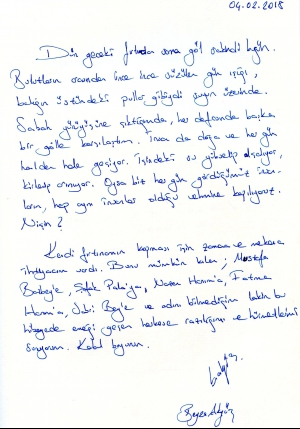 04.02.2018
Dün geceki fırtınadan sonra göl sakindi bugün.
Bulutların arasından ince ince süzülen gün ışığı,
balığın üstündeki pullar gibiydi suyun üzerinde.
Sabah yürüyüşüne çıktığımda, her defasında başka
bir gölle karşılaştım. İnsan da doğa ve her gün
halden hale geçiyor. İçindeki su yükselip alçalıyor,
kirlenip arınıyor. Oysa biz her gün gördüğümüz insan-
ların, hep aynı insanlar olduğu vehmine kapılıyoruz.
Niçin?
Kendi fırtınamın kopması için zamana ve mekana
ihtiyacım vardı. Bunu mümkün kılan, Mustafa
Bey'e, Nazan Hanım'a, Fatma
Hanım'a, Bey'e ve adını bilmediğim lakin bu
hikayede emeği geçen herkese saygılarımı ve hürmetlerimi
sunuyorum. Kabul buyurun.